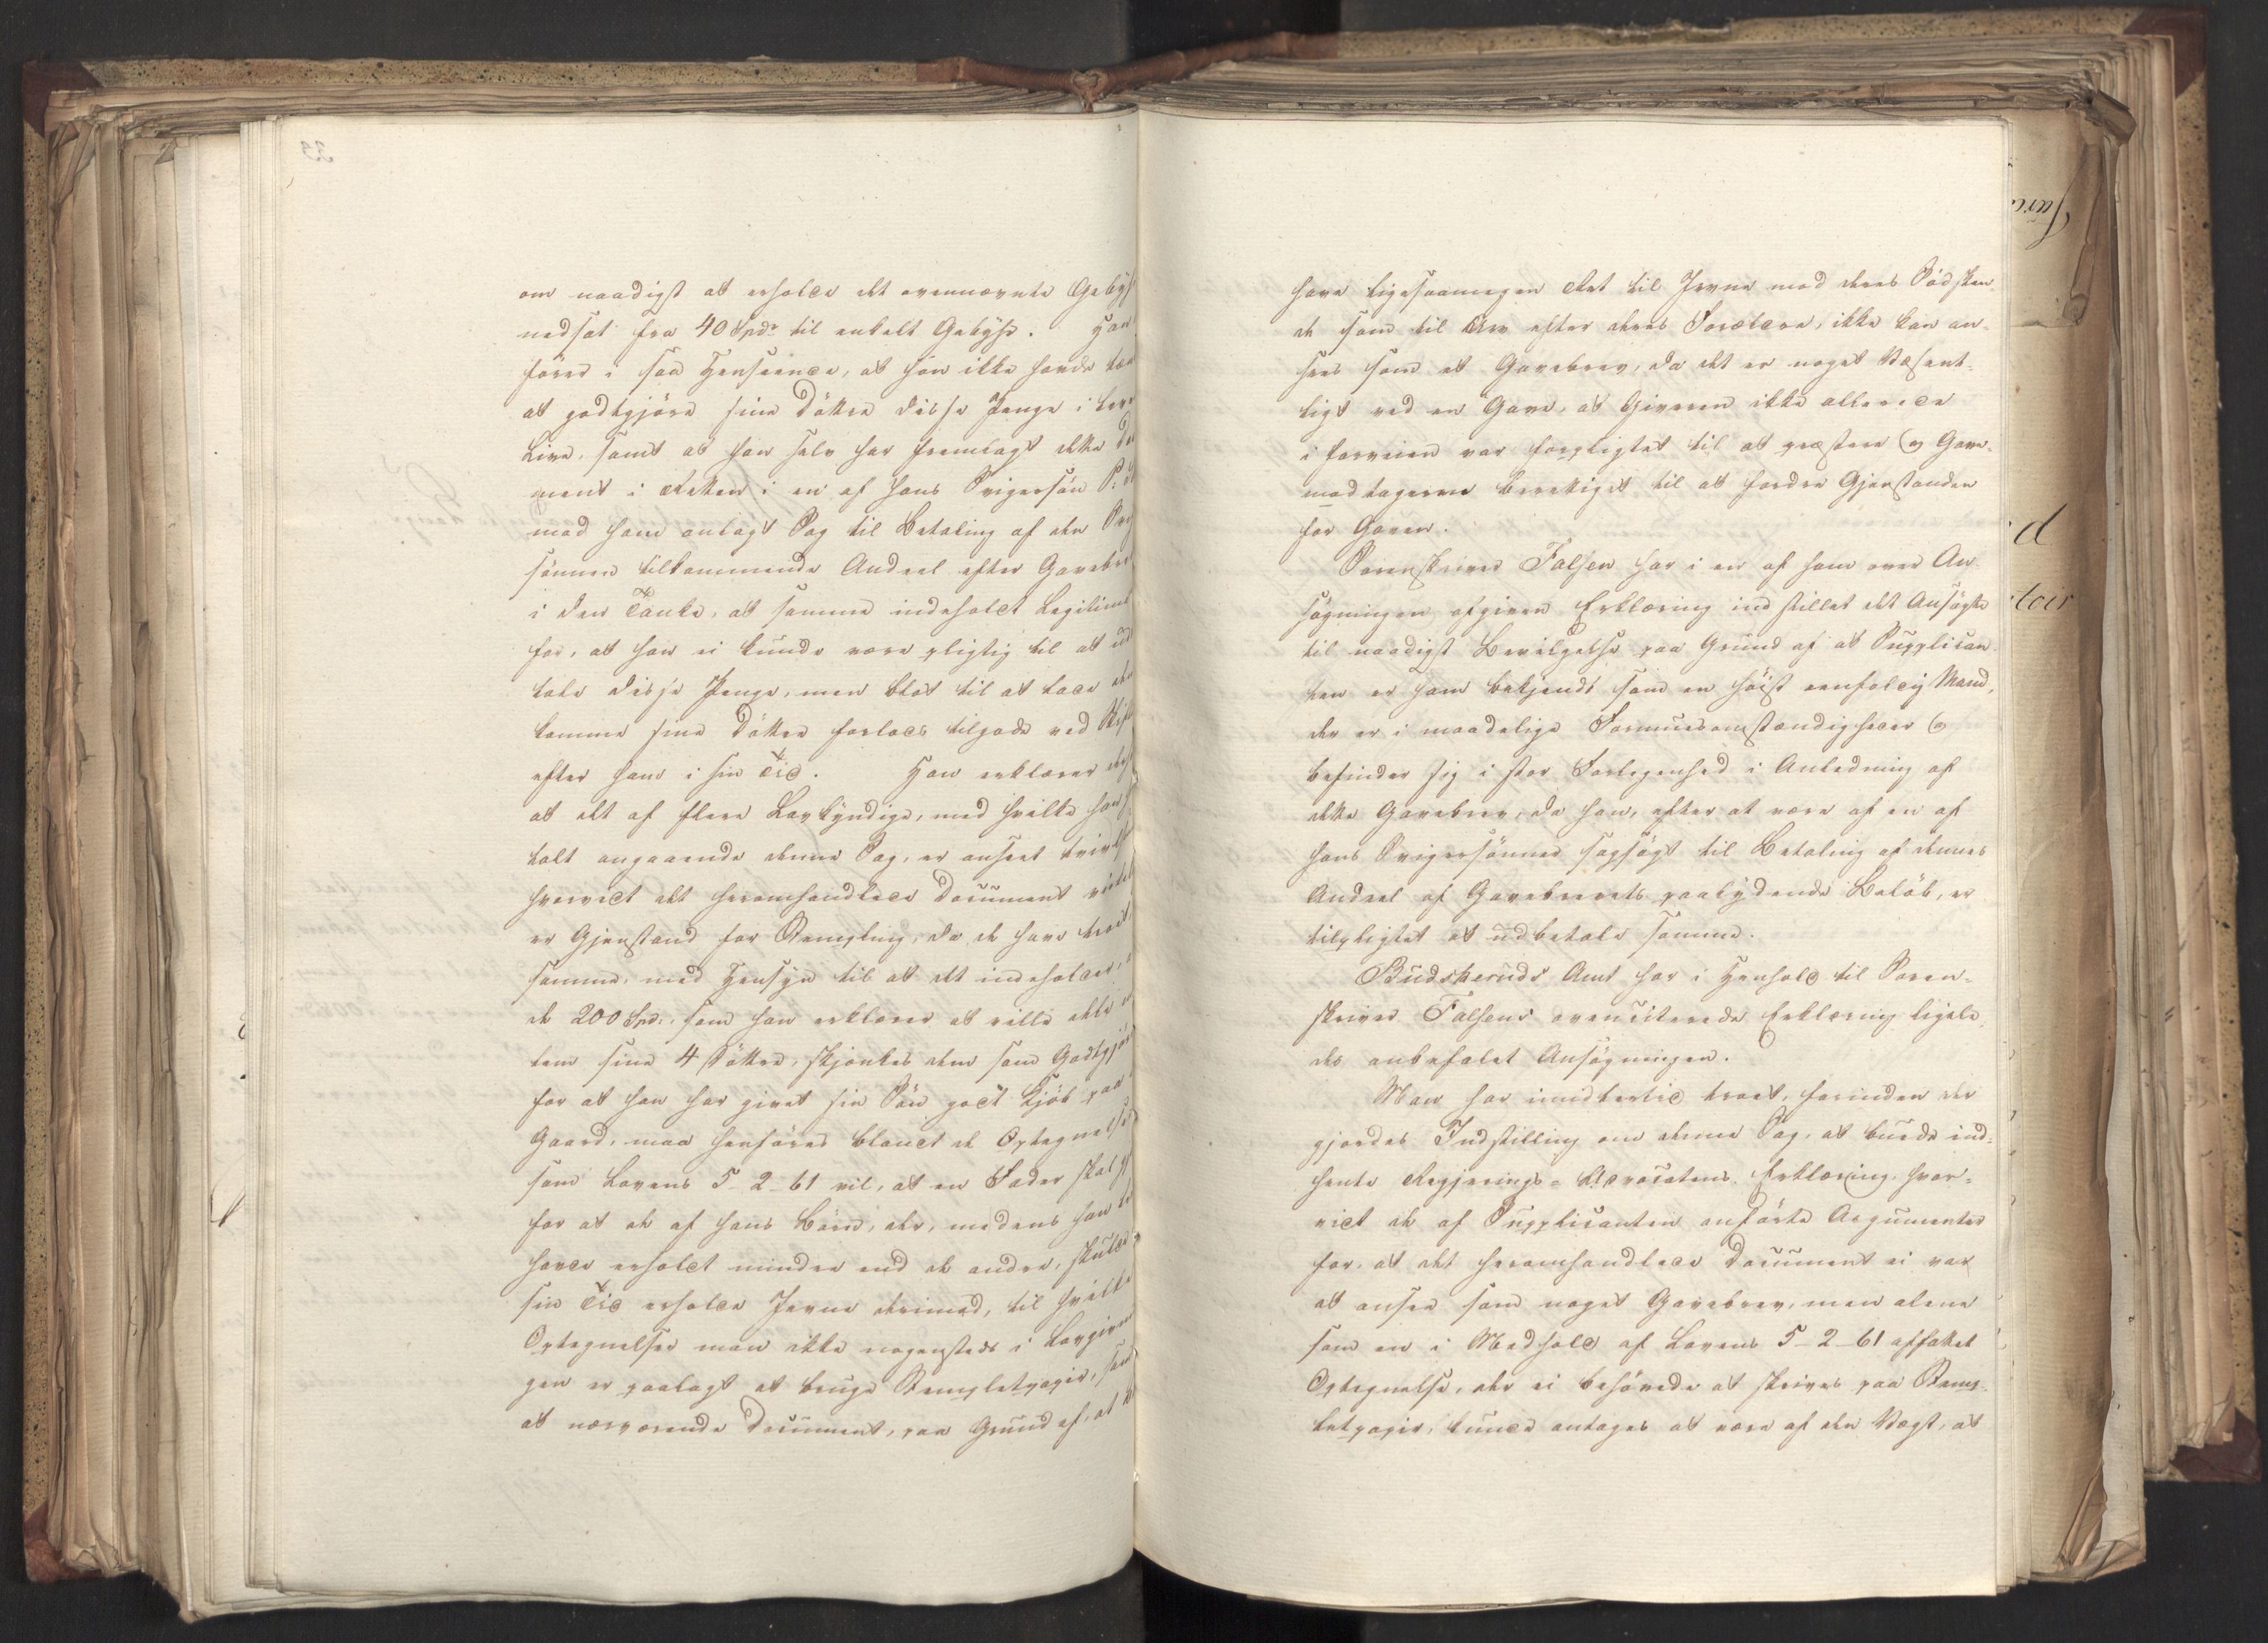 om naadigst at erholde det ovennævnte Gebyhr
nedsat fra 40 Spdr til enkelt Gebyhr. Han
förer i saa Henseende, at han ikke havde tæn
at godtgjöre sine Döttre disse Penge i leve
Live, samt at han selv har fremlagt dette Do
ment i Retten i en af hans Svigersön
mod ham anlagt Sag til Betaling af den Svig
sönnen tilkommende Andeel efter Gavebre
i den Tanke, at samme indeholdt Legitima
for, at han ei kunde være pligtig til at ud
tale disse Penge, men blot til at lade den
komme sine Döttre forlods tilgode ved Skif
efter ham i sin Tid. Han erklærer des
at det af flere Lovkyndige, med hvilke han
talt angaaende denne Sag, er anseet tvivls
hvorvidt det heromhandlede Document virkel
er Gjenstand for Stempling, da de have troet
samme, med Hensyn til at det indeholder,
de 200 Spd., som han erklærer at ville
lem sine 4 Döttre, skjenkes dem som Godtgjör
for at han har givet sin Sön godt Kjöb paa
Gaard, maa henföres blandt de Optegnelser
som Lovens 5-2-61 vil, at en Fader skal gj
for at de af hans Börn, der, medens han
haver erholdt mindre end de andre, skulde
sin Tid erholde Jevne derimod, til hvilke
Optegnelser man ikke nogensteds i Lovgivni
gen er paalagt at bruge Stempletpapir, sam
at nærværende Document, paa Grund af, at
have ligesaamegen Ret til Jevne mod deres Södsken,
de som til Arv efter deres Forældre, ikke kan an-
sees som et Gavebrev, da det er noget Væsent-
ligt ved en Gave, at Giveren ikke allerede
i Forveien var forpligtet til at præstere og Gave-
modtageren berettiget til at fordre Gjenstanden
for Gaven.
Sorenskriver Falsen har i en af ham over An-
søgningen afgiven Erklæring indstillet det Ansögte
til naadigst Bevilgelse paa Grund af at Supplican-
ten er ham bekjendt som en höist eenfoldig Mand,
der er i maadelige Formuesomstændigheder og
befinder sig i stor Forlegenhed i Anledning af
dette Gavebrev, da han, efter at være af en af
hans Svigersönner sagsögt til Betaling af dennes
Andeel af Gavebrevets paalydende Belöb, er
tilpligtet at udbetale samme.
Budskeruds Amt har i Henhold til Soren-
skriver Falsens ovenciterede Erklæring ligele-
des anbefalet Ansögningen.
Man har imidlertid troet, forinden der
gjordes Indstilling om denne Sag, at burde ind-
hente Regjerings-Advocatens Erklæring, hvor-
vidt de af Supplicanten anförte Argumenter
for, at det heromhandlede Document ei var
at ansee som noget Gavebrev, men alene
som en i Medhold af Lovens 5-2-61 affattet
Optegnelse, der ei behövede at skrives paa Stemp-
letpapir, kunde antages at være af den Vægt, at